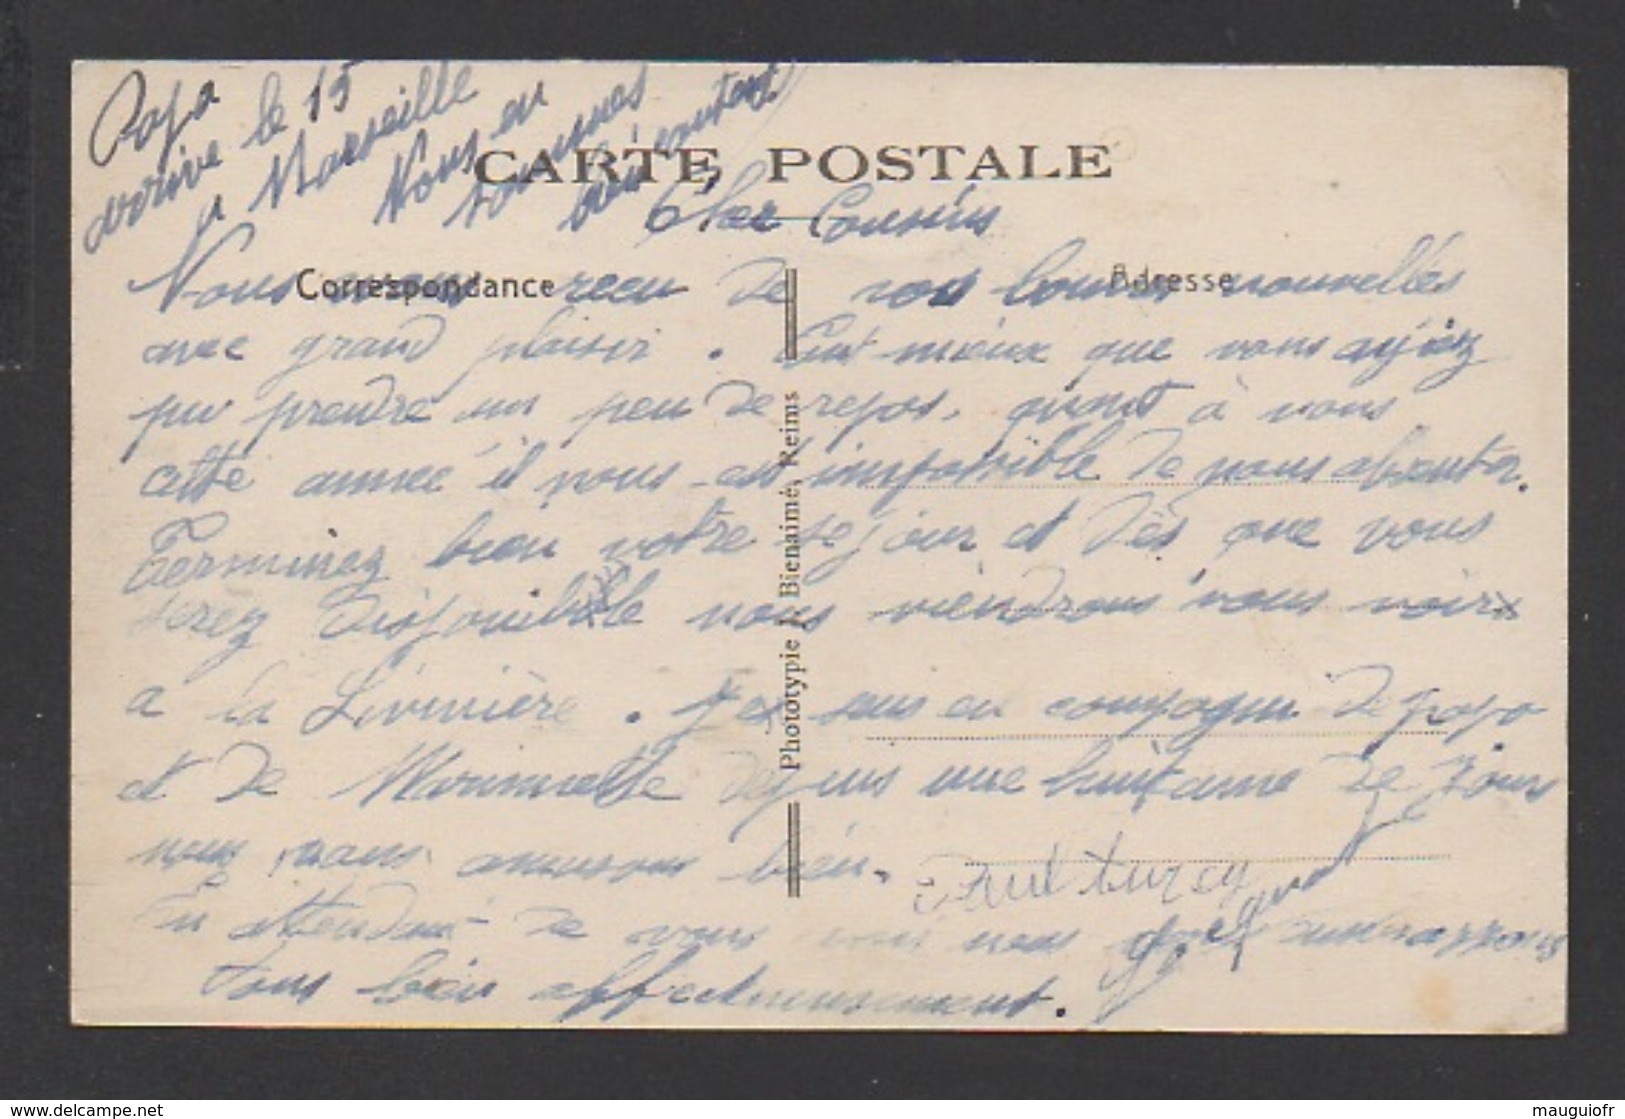 Papa
arrive le 15
a Marseille
Nous en
sommes
bien contents
CARTE POSTALE
Cher Cousins
Correspondance
Adresse
Nous avons recu de vos bonnes nouvelles
avec grand plaisir. Tant mieux que vous ayiez
pu prendre un peu de repos, quant à nous
cette année il nous est impossible de nous absenter.
Terminez bien votre sejour et dès que vous
serez disponible nous viendrons vous voir
a la Livinière. Je suis en compagnie de papa
et de Mounette depuis une huitaine de jours
nous nous amusons bien.
En attendant de vous voir nous embrassons
tous bien affectueusement.
Phototypie J. Bienaimé, Reims
mauguiofr
www.delcampe.net